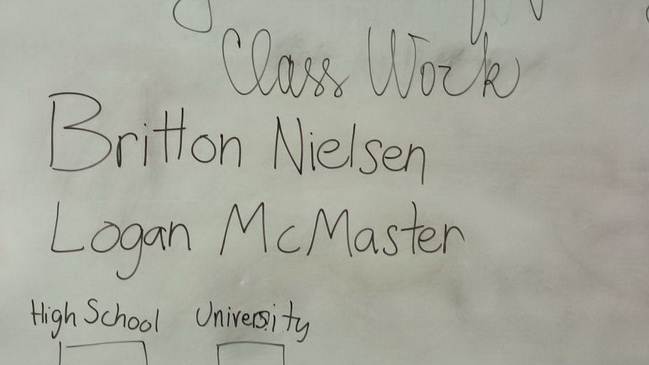 Class Work
Britton Nielsen
Logan McMaster
High School University